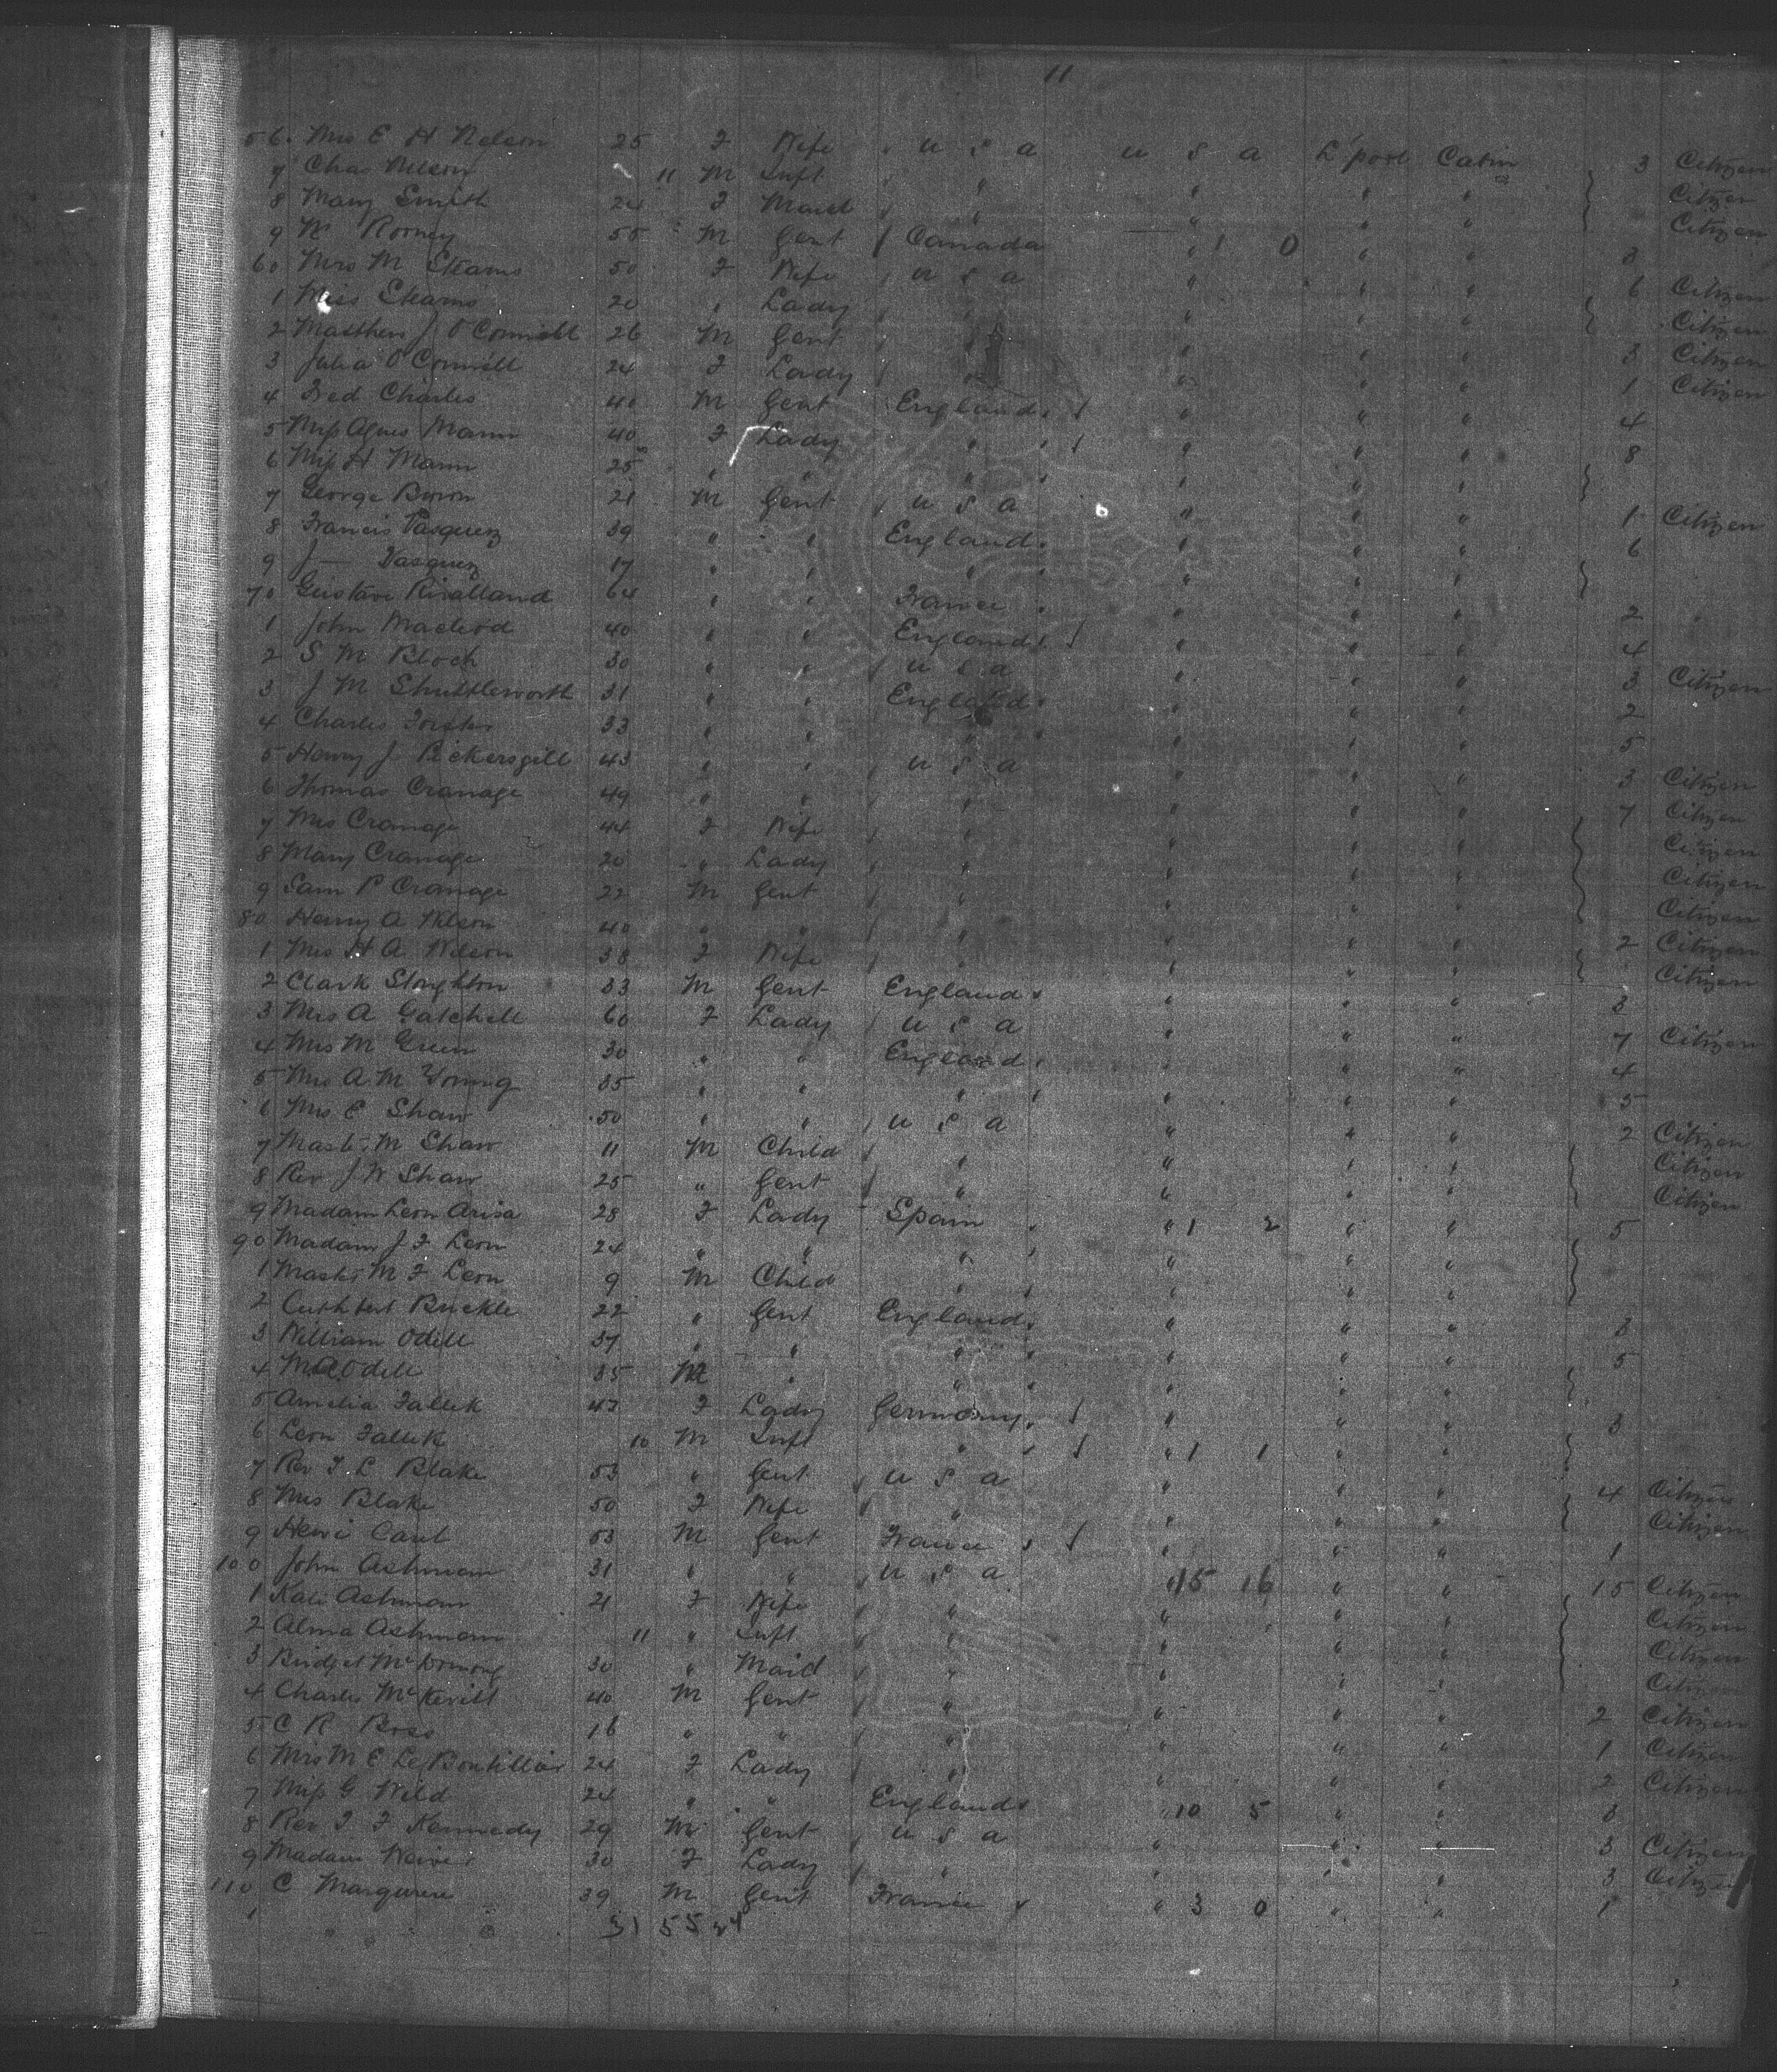 11
56. Mrs E H Nelson 25 F Wife U S A U S A L'pool Cabin 3 Citizen
7 Chas Nelson 11 M Inft " " " " Citizen
8 Mary Smith 24 F Maid " " " " Citizen
9 W Rooney 55 M Gent Canada " 1 0 " " 3
60 Mrs M Stearns 50 F Wife U S A " " " 6 Citizen
1 Miss Stearns 20 " Lady " " " " Citizen
2 Matthew J O'Connell 26 M Gent " " " " 3 Citizen
3 Julia O'Connell 24 F Lady " " " " 1 Citizen
4 Fred Charles 40 M Gent England " " " 4
5 Miss Agnes Mann 40 F Lady " " " " 8
6 Miss H Mann 25 " " " " " "
7 George Byron 21 M Gent U S A " " " 1 Citizen
8 Francis Vasquez 39 " " England " " " 6
9 J— Vasquez 17 " " " " " "
70 Gustave Rivalland 64 " " France " " " 2
1 John Macleod 40 " " England " " " 4
2 S M Bloch 30 " " U S A " " " 3 Citizen
3 J M Shuttleworth 31 " " England " " " 2
4 Charles Forster 33 " " " " " " 5
5 Henry J Pickersgill 43 " " U S A " " " 3 Citizen
6 Thomas Cranage 49 " " " " " " 7 Citizen
7 Mrs Cranage 44 F Wife " " " " Citizen
8 Mary Cranage 20 " Lady " " " " Citizen
9 Sam P Cranage 22 M Gent " " " " Citizen
80 Henry A Wilson 40 " " " " " " 2 Citizen
1 Mrs H A Wilson 38 F Wife " " " " Citizen
2 Clark Stoughton 33 M Gent England " " " 3
3 Mrs A Gatchell 60 F Lady U S A " " " 7 Citizen
4 Mrs M Green 30 " " England " " " 4
5 Mrs A M Young 35 " " " " " " 5
6 Mrs E Shaw 50 " " U S A " " " 2 Citizen
7 Mastr M Shaw 11 M Child " " " " Citizen
8 Rev J W Shaw 25 " Gent " " " " Citizen
9 Madam Leon Arisa 28 F Lady Spain " 1 2 " " 5
90 Madam J F Leon 24 " " " " " "
1 Mastr M F Leon 9 M Child " " " "
2 Cuthbert Buckle 22 " Gent England " " " 3
3 William Odell 37 " " " " " " 5
4 M A Odell 35 M " " " " "
5 Amelia Fallek 42 F Lady Germany " " " 3
6 Leon Fallek 10 M Inft " " 1 1 " "
7 Rev F L Blake 53 " Gent U S A " " " 4 Citizen
8 Mrs Blake 50 F Wife " " " " Citizen
9 Henri 53 M Gent France " " " 1
100 John Ashman 31 " " U S A " 15 16 " " 15 Citizen
1 Kate Ashman 21 F Wife " " " " Citizen
2 Alma Ashman 11 " Inft " " " " Citizen
3 Bridget 30 " Maid " " " " Citizen
4 Charles McKevitt 40 M Gent " " " " 2 Citizen
5 C R Boss 16 " " " " " " 1 Citizen
6 Mrs M E Le Boutillier 24 F Lady " " " " 2 Citizen
7 Miss G Wild 24 " " England " 10 5 " " 3
8 Rev T F Kennedy 29 M Gent U S A " " " 3 Citizen
9 Madam 30 F Lady " " " " 3 Citizen
110 C 39 M Gent France " 3 0 " " 1
31 55 24